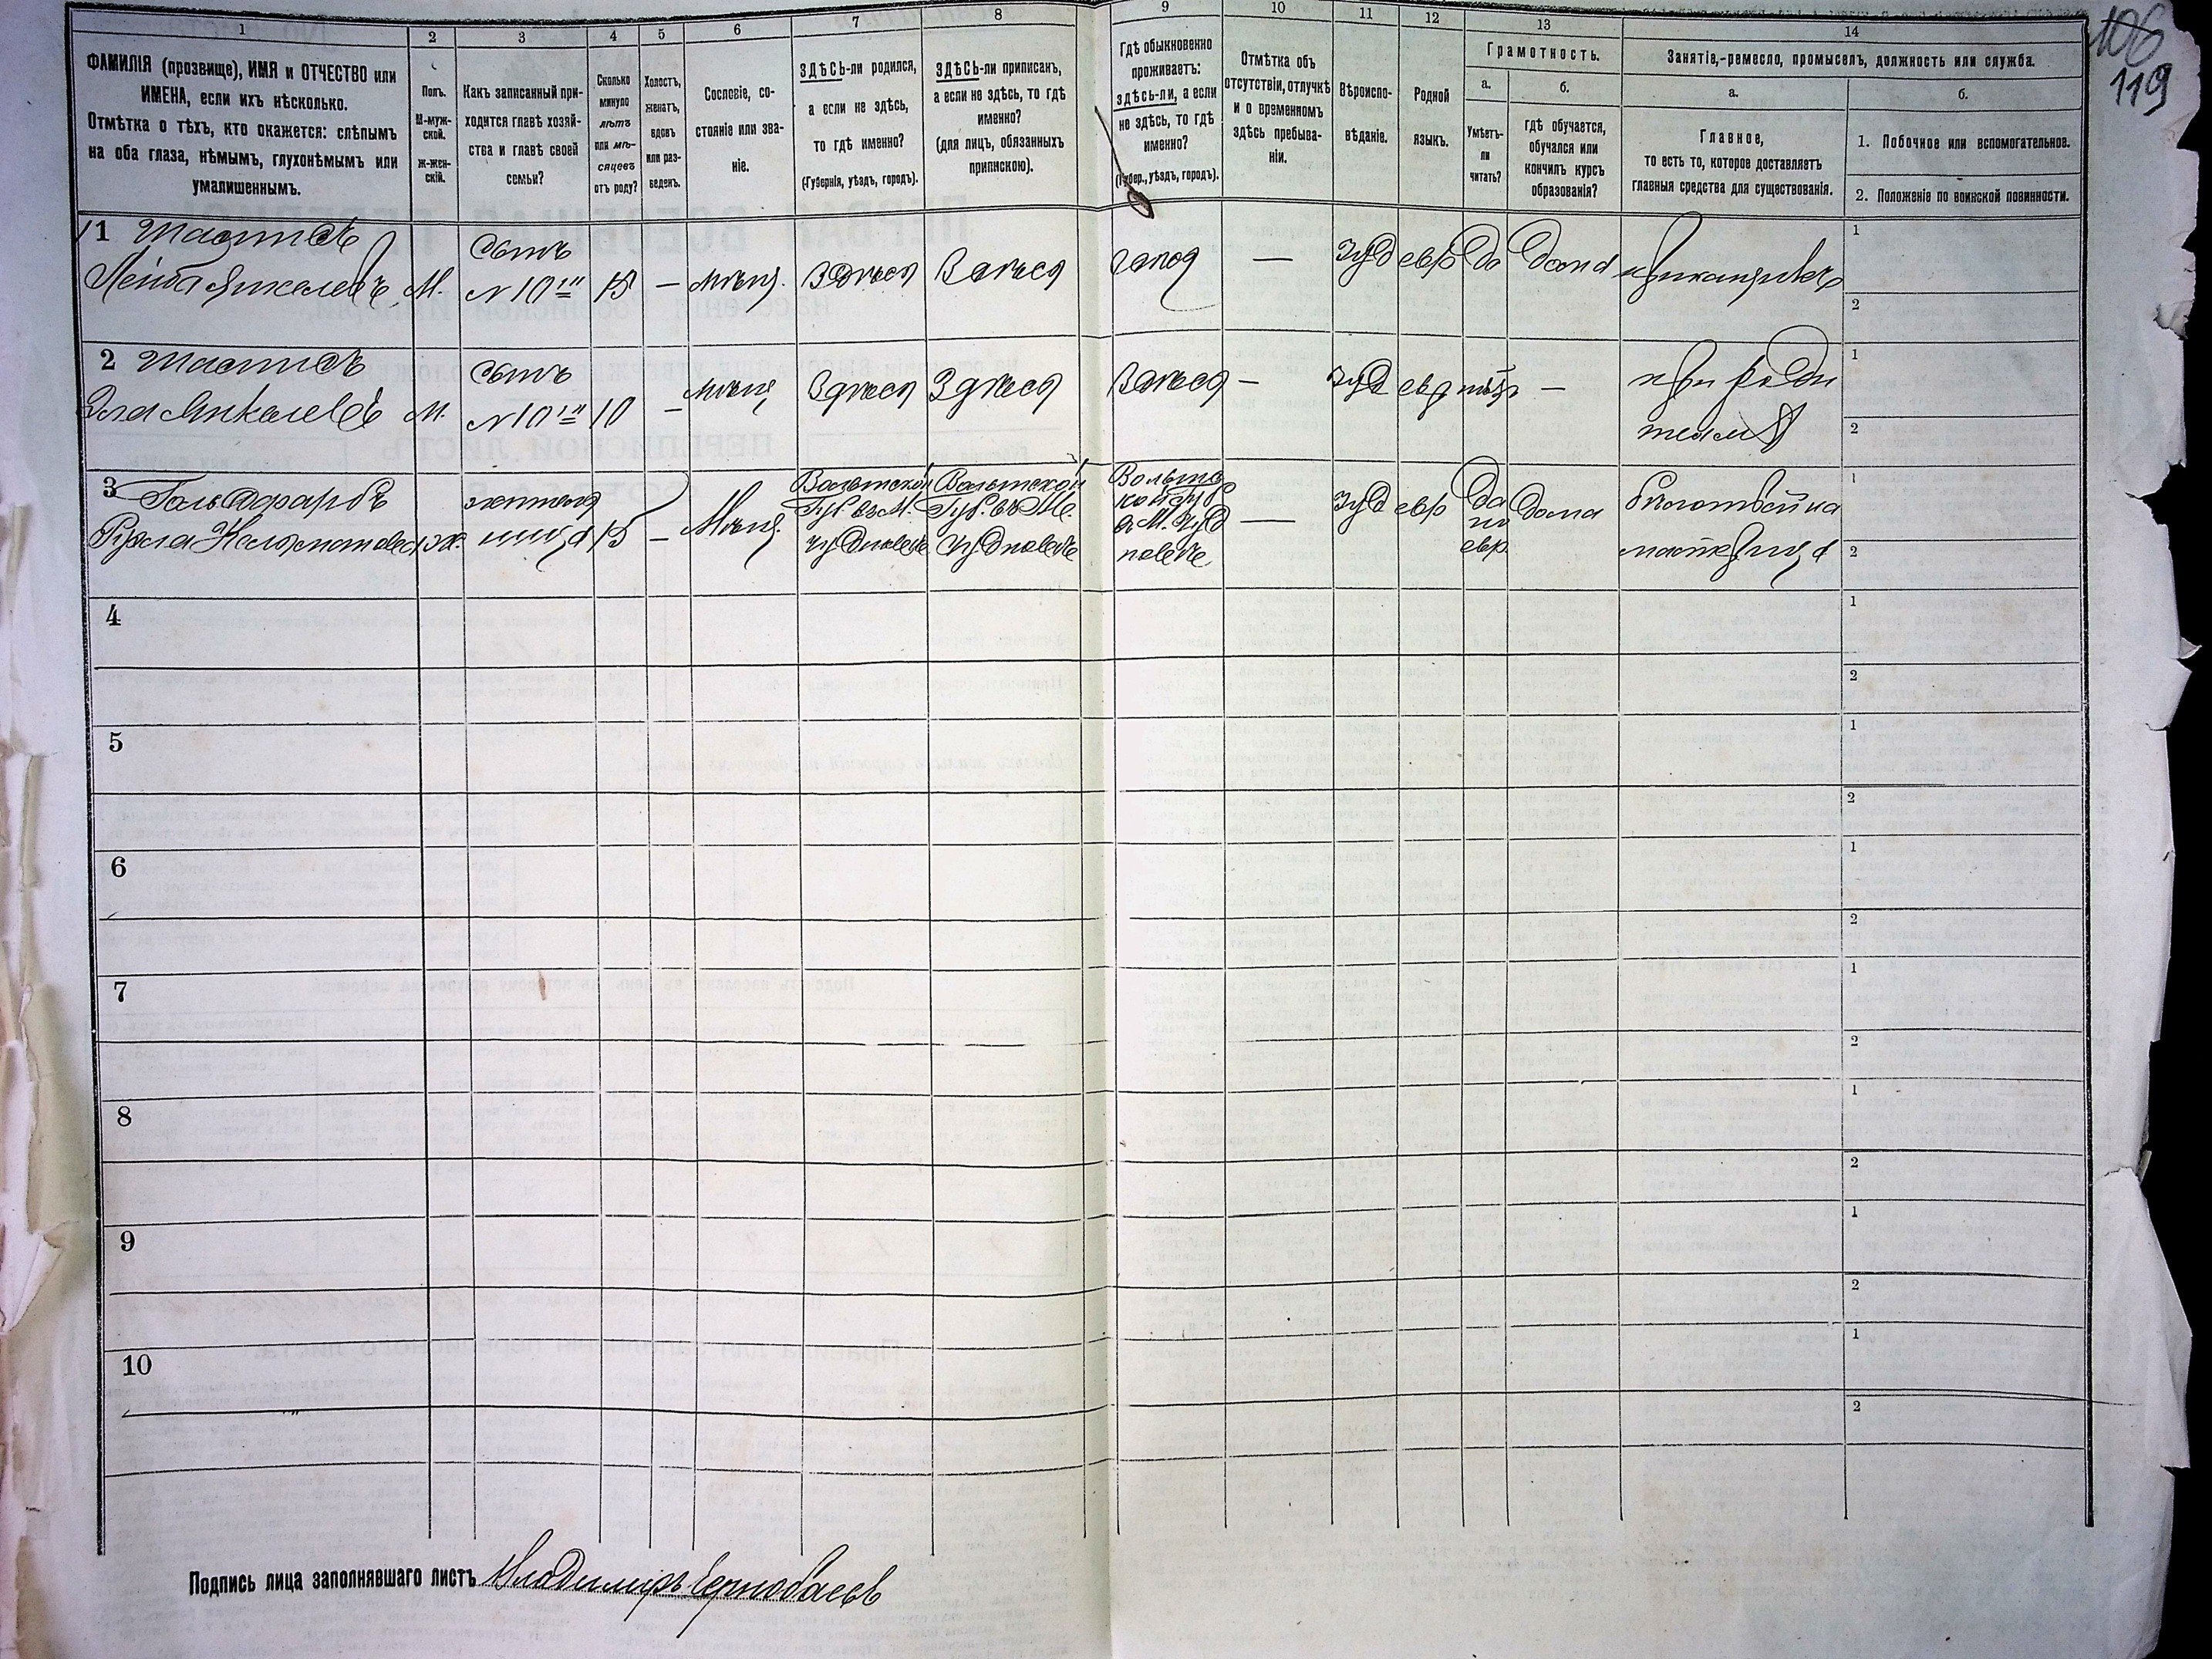 106
119
1
2
3
4
5
6
7
8
9
10
11
12
13
14
ФАМИЛІЯ (прозвище), ИМЯ и ОТЧЕСТВО или
ИМЕНА, если ихъ нѣсколько.
Отмѣтка о тѣхъ, кто окажется: слѣпымъ
на оба глаза, нѣмымъ, глухонѣмымъ или
умалишеннымъ.
Полъ.
М-муж-
ской.
ж-жен-
скій.
Какъ записанный при-
ходится главѣ хозяй-
ства и главѣ своей
семьи?
Сколько
минуло
лѣтъ
или мѣ-
сяцевъ
отъ роду?
Холостъ,
женатъ,
вдовъ
или раз-
веденъ.
Сословіе, со-
стояніе или зва-
ніе.
ЗДѢСЬ-ли родился,
а если не здѣсь,
то гдѣ именно?
(Губернія, уѣздъ, городъ).
ЗДѢСЬ-ли приписанъ,
а если не здѣсь, то гдѣ
именно?
(для лицъ, обязанныхъ
припискою).
Гдѣ обыкновенно
проживаетъ:
здѣсь-ли, а если
не здѣсь, то гдѣ
именно?
(Губер., уѣздъ, городъ).
Отмѣтка объ
отсутствіи, отлучкѣ
и о временномъ
здѣсь пребыва-
ніи.
Вѣроиспо-
вѣданіе.
Родной
языкъ.
Грамотность.
а.
б.
Умѣетъ-
ли
читать?
гдѣ обучается,
обучался или
кончилъ курсъ
образованія?
Занятіе,-ремесло, промыселъ, должность или служба.
а.
б.
Главное,
то есть то, которое доставляетъ
главныя средства для существованія.
1. Побочное или вспомогательное.
2. Положеніе по воинской повинности.
1
М.
Сынъ
N 10
15
—
мѣщ.
Здѣсь
Здѣсь
—
Іуд
евр
да
дома
1
2
2
М.
Сынъ
N 10
10
—
мѣщ
Здѣсь
Здѣсь
Здѣсь
—
Іуд
евр
нѣтъ
—
при роди
теляхъ
1
2
3 Гольдфарбъ
ж.
15
—
Мѣщ.
Волынской
Губ. въ М.
Чудновѣ
Волынской
Губ. въ М.
Чудновѣ
Волынс
кой губ
в М. Чуд
новѣ
—
Іуд
евр
да
по
евр.
дома
1
2
4
1
2
5
1
2
6
1
2
7
1
2
8
1
2
9
1
2
10
1
2
Подпись лица заполнявшаго листъ Владиміръ Чернобаевъ